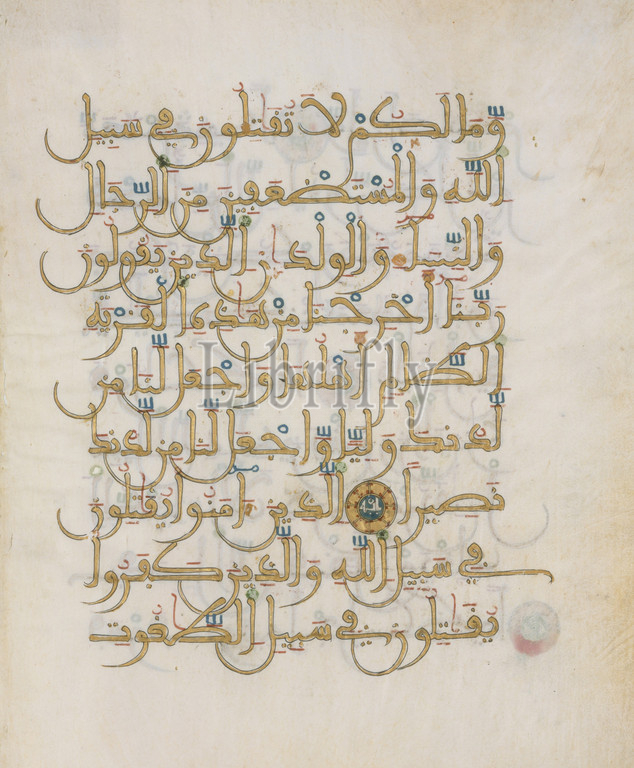 وَمَا لَكُمْ لَا تُقَٰتِلُونَ فِي سَبِيلِ
اللَّهِ وَالْمُسْتَضْعَفِينَ مِنَ الرِّجَالِ
وَالنِّسَاءِ وَالْوِلْدَٰنِ الَّذِينَ يَقُولُونَ
رَبَّنَا أَخْرِجْنَا مِنْ هَٰذِهِ الْقَرْيَةِ
الظَّالِمِ أَهْلُهَا وَاجْعَل لَّنَا مِن
لَّدُنكَ وَلِيًّا وَاجْعَل لَّنَا مِن لَّدُنكَ
نَصِيرًا الَّذِينَ ءَامَنُوا يُقَٰتِلُونَ
فِي سَبِيلِ اللَّهِ وَالَّذِينَ كَفَرُوا
يُقَٰتِلُونَ فِي سَبِيلِ الطَّٰغُوتِ
Librifly